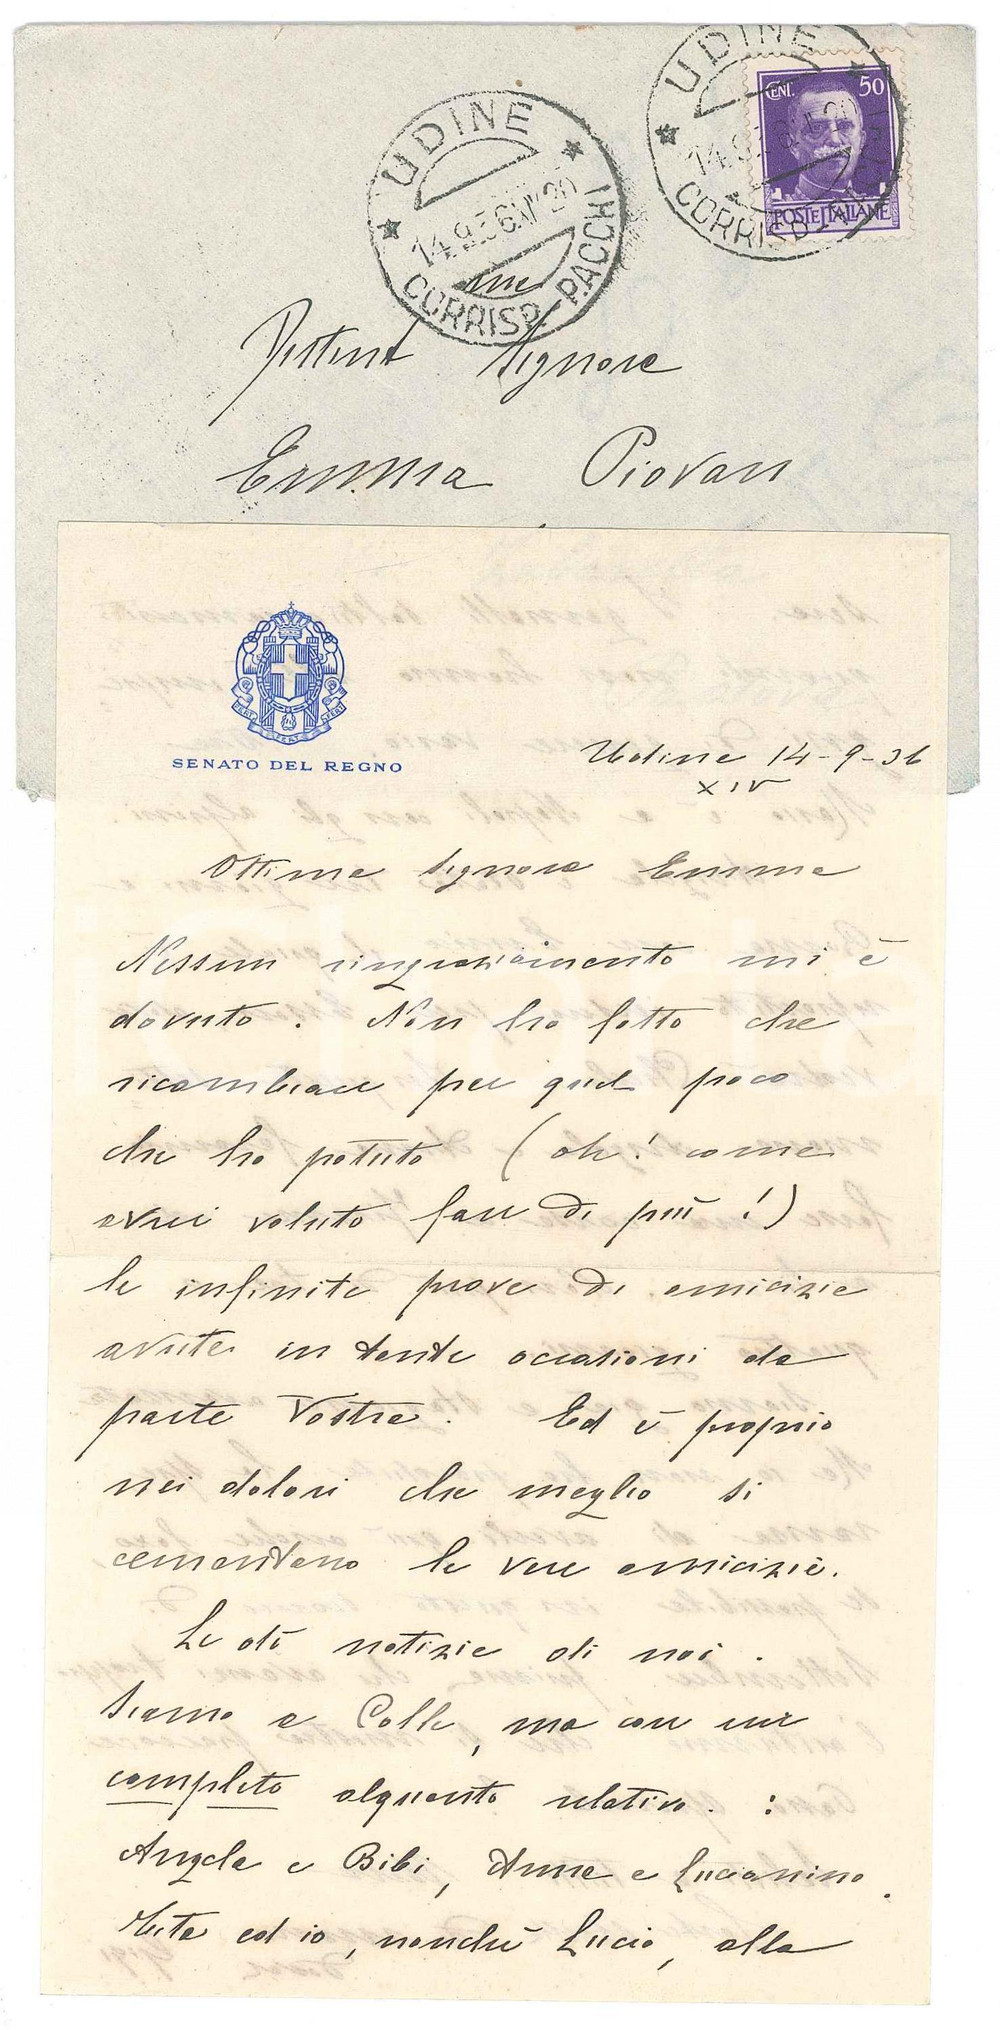 UDINE
14.9.36.XIV 20
CORRISP. PACCHI
UDINE
CORRISP.
CENT. 50
POSTE ITALIANE
Signora
Emma Piovan
FERT FERT FERT
SENATO DEL REGNO
Udine 14-9-36
XIV
Ottima Signora Emma
Nessun ringraziamento mi è
dovuto. Non ho fatto che
ricambiare per quel poco
che ho potuto (oh! come
avrei voluto fare di più!)
le infinite prove di amicizia
avute in tante occasioni da
parte Vostra. Ed è proprio
nei dolori che meglio si
cementano le vere amicizie.
Le dò notizie di noi.
Siamo a Colle, ma con un
completo alquanto relativo. :
Angela e Bibi, Anna e Lucianino.
ed io, nonchè Lucio, alla